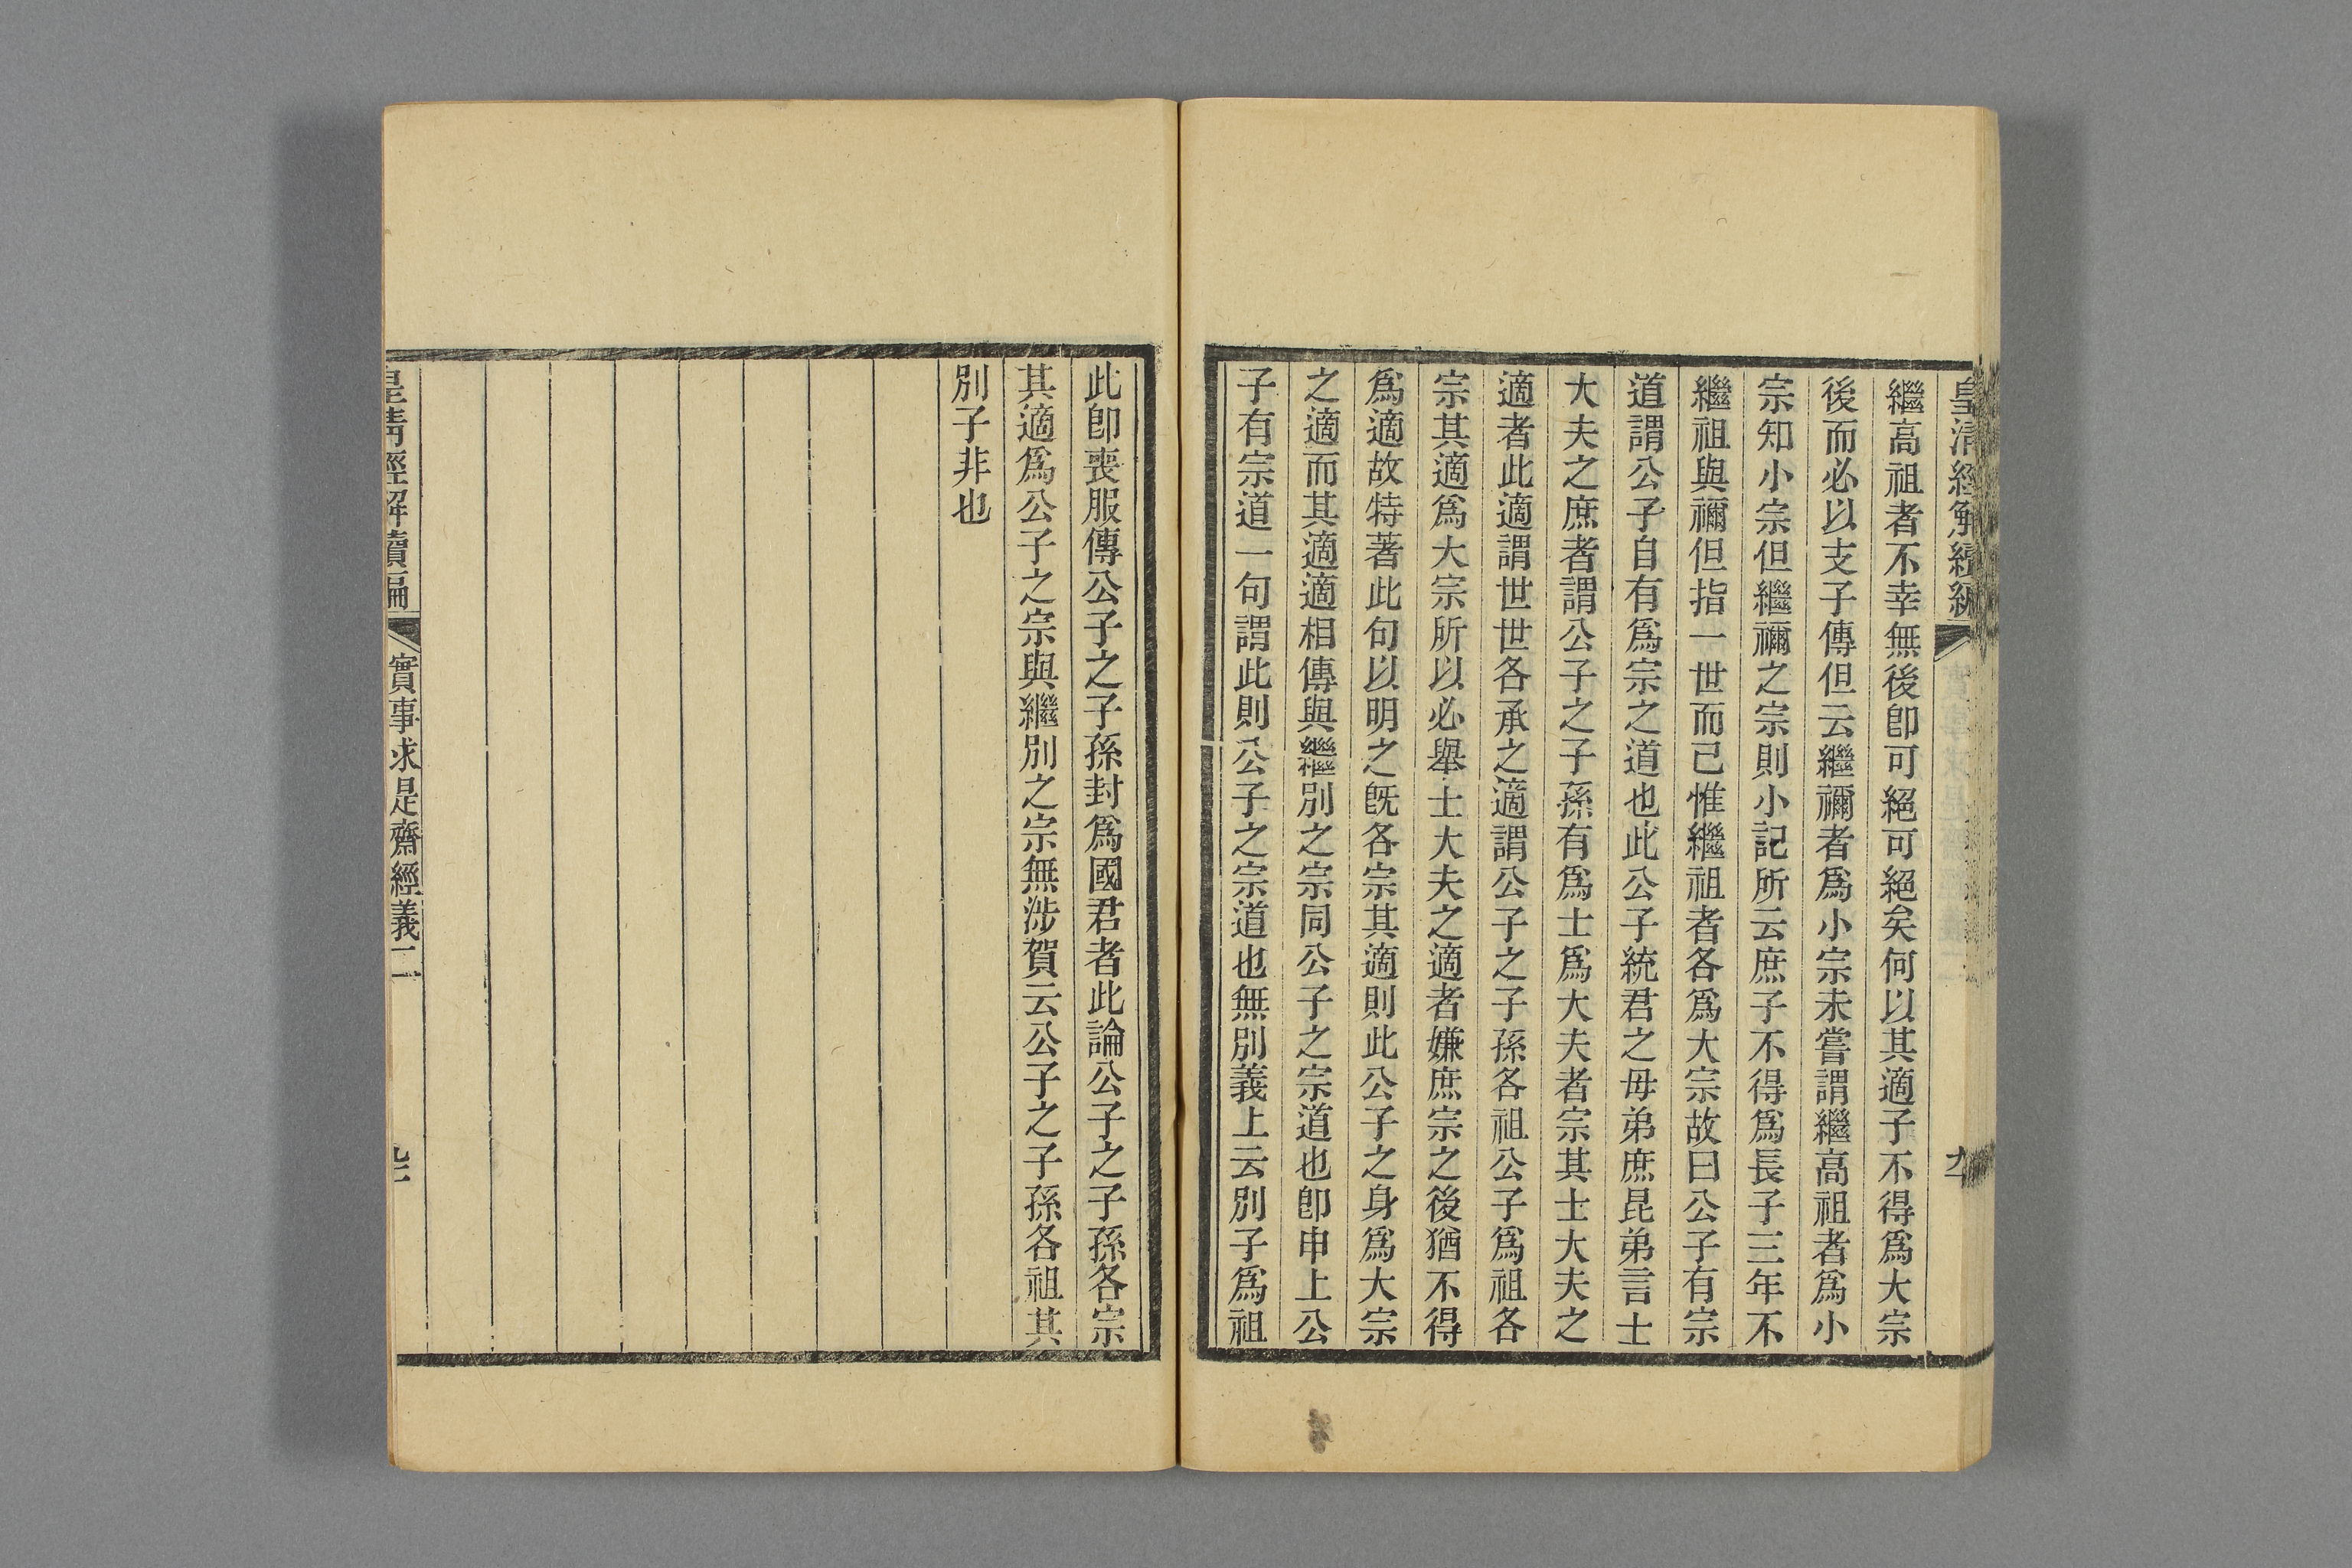 皇清經解續編
繼高祖者不幸無後卽可絕可絕矣何以其適子不得爲大宗
後而必以支子傳但云繼禰者爲小宗未嘗謂繼高祖者爲小
宗知小宗但繼禰之宗則小記所云庶子不得爲長子三年不
繼祖與禰但指一世而己惟繼祖者各爲大宗故曰公子有宗
道謂公子自有爲宗之道也此公子統君之毋弟庶昆弟言士
大夫之庶者謂公子之子孫有爲士爲大夫者宗其士大夫之
適者此適謂世世各承之適謂公子之子孫各祖公子爲祖各
宗其適爲大宗所以必舉士大夫之適者嫌庶宗之後猶不得
爲適故特著此句以明之旣各宗其適則此公子之身爲大宗
之適而其適適相傳與繼別之宗同公子之宗道也卽申上公
子有宗道一句謂此則公子之宗道也無別義上云別子爲祖
此卽喪服傳公子之子孫封爲國君者此論公子之子孫各宗
其適爲公子之宗與繼別之宗無涉賀云公子之子孫各祖其
別子非也
皇清經解續編 實事求是齋經義二